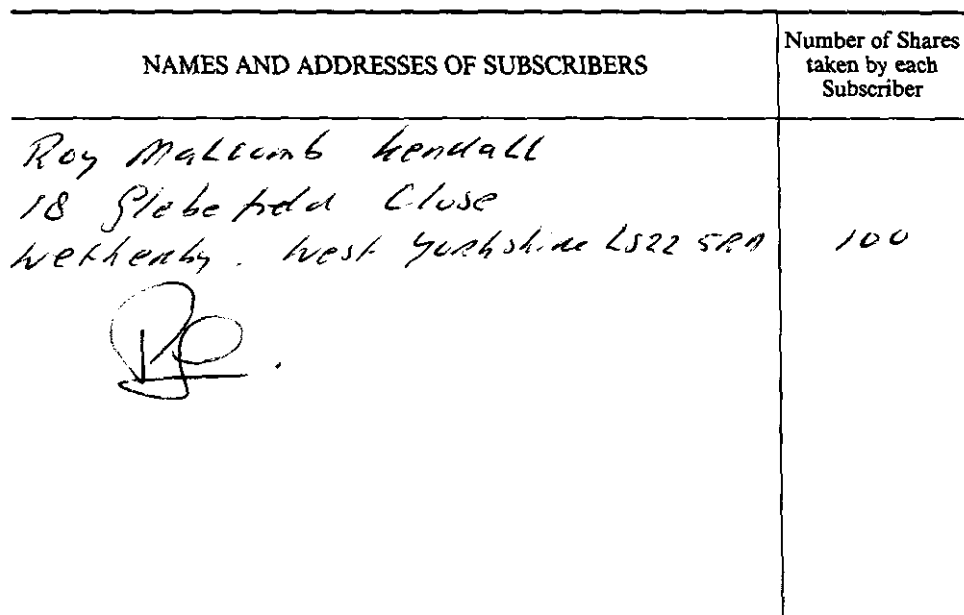 NAMES AND ADDRESSES OF SUBSCRIBERS
Number of Shares
taken by each
Subscriber
Roy Kendall
18 Glebefield Close
Wetherby. West Yorkshire LS22 5RA
100